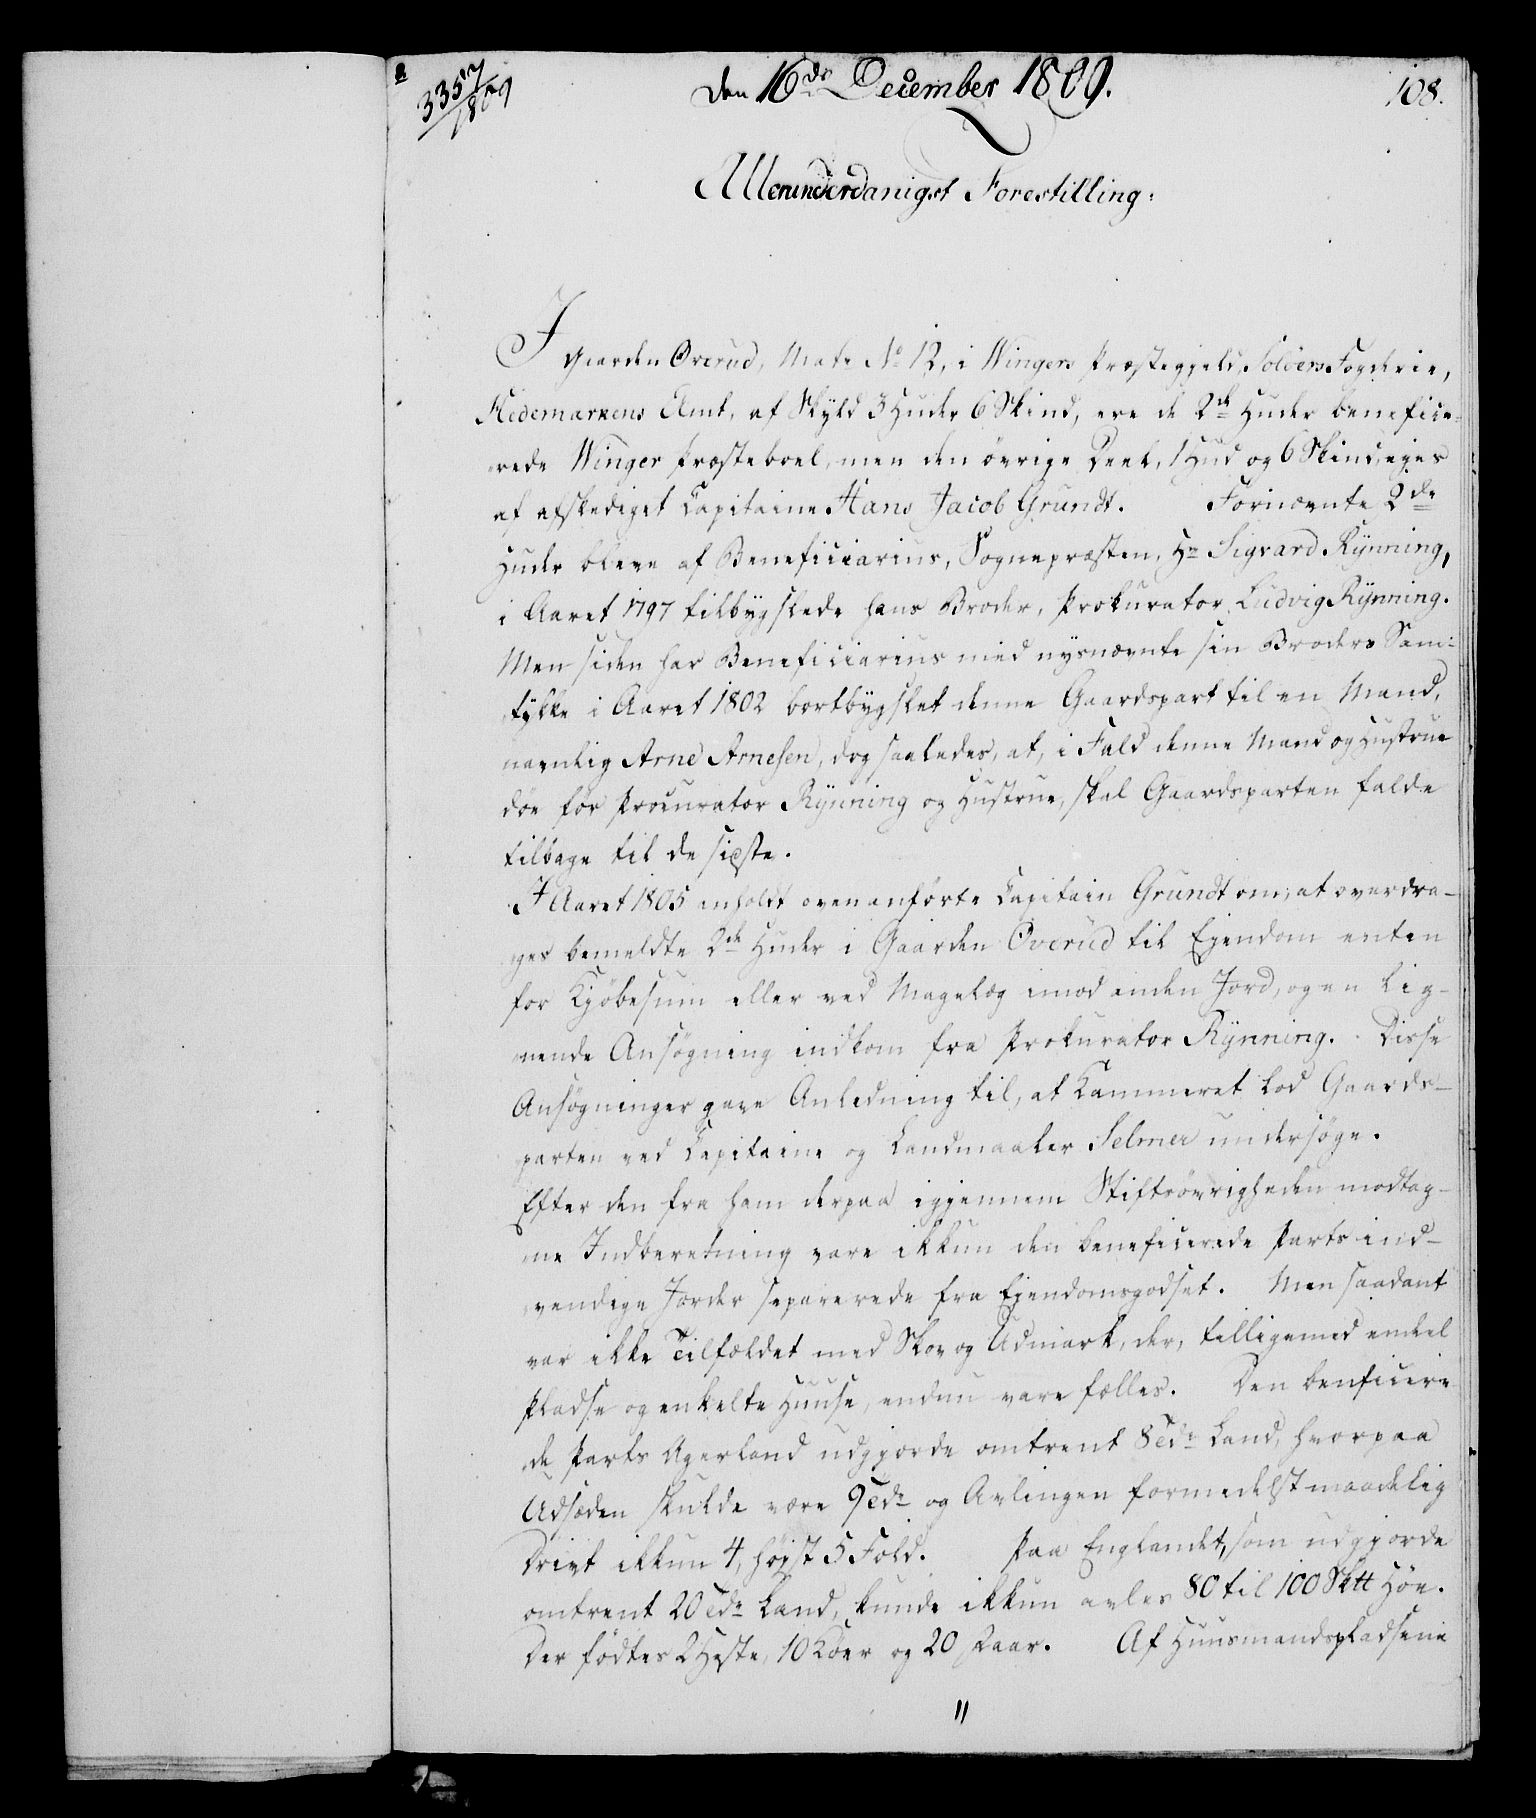 3357/1809
Den 16de December 1809.
108.
Allerunderdanigst Forestilling:
I
Gaarden Overud, Matr No 12, i Wingers Præstegjeld, Soløers Fogderie,
Hedemarkens Amt, af Skyld 3 Huder 6 Skind, ere de 2de Huder benefice-
rede Winger Præsteboel, men den øvrige Deel, 1 Hud og 6 Skind, eies
af afskediget Capitaine Hans Jacob Grundt. Fornævnte 2de
Huder bleve af Beneficiarius, Sognepræsten, Hr Sigvard Rÿnning,
i Aaret 1797 tilbygslede hans Broder, Prokurator Ludvig Rÿnning.
Men siden har Beneficiarius med nysnævnte sin Broders Sam-
tykke i Aaret 1802 bortbygslet denne Gaardspart til en Mand,
navnlig Arne Arnesen, dog saaledes, at, i Fald denne Mand og Hustrue
døe før Procurator Rÿnning og Hustrue, skal Gaardsparten falde
tilbage til de sidste.
I Aaret 1805 anholdt ovenanførte Capitain Grundt om, at overdra-
ges bemeldte 2de Huder i Gaarden Overud til Ejendom enten
for Kjøbesum eller ved Magelæg imod anden Jord, og en lig-
nende Ansøgning indkom fra Prokurator Rÿnning. Disse
Ansøgninger gave Anledning til, at Kammeret lod Gaards-
parten ved Capitaine og Landmaaler Selmer undersøge.
Efter den fra ham derpaa igjennem Stiftsøvrigheden modtag-
ne Indberetning vare ikkun den beneficerede Parts ind-
vendige Jorder separerede fra Ejendomsgodset. Men saadant
var ikke Tilfældet med Skov og Udmark, der, tilligemed endeel
Pladse og enkelte Huuse, endnu vare fælles. Den benficere
de Parts Agerland udgjorde omtrent 8 Tdr Land, hvorpaa
Udsæden skulde være 9 Tdr og Avlingen formedelst maadelig
Drivt ikkun 4, højst 5 Fold. Paa Englandet, som udgjorde
omtrent 20 Tdr Land, kunde ikkun avles 80 til 100 Sktt Høe.
Der fødtes 2 Heste, 10 Køer og 20 Faar. Af Huusmandspladsene
"